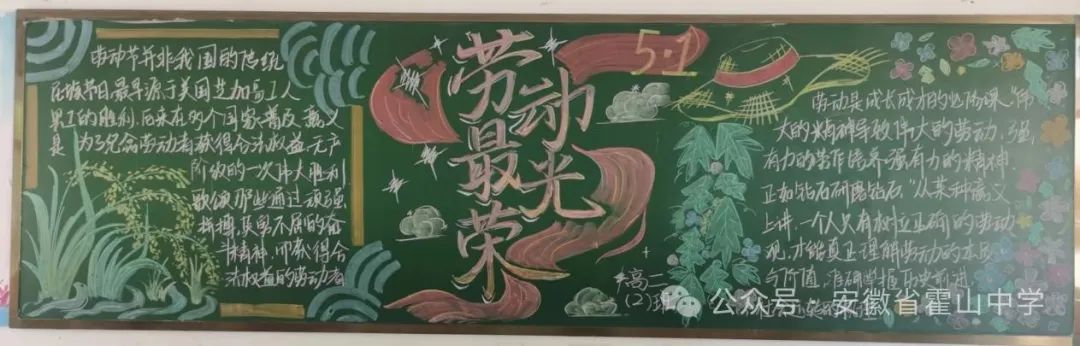 劳动节并非我国的传统
民族节日最早源于美国芝加哥工人
罢工的胜利,后来在多个国家普及,意义
是为了纪念劳动者获得合法权益,无产
阶级的一次伟大胜利
歌颂那些通过顽强
拼搏,英勇不屈的奋
斗精神,而获得合
法权益的劳动者
劳动最光荣
5·1
高二
(2)班
劳动是成长成才的必修课,"伟
大的精神导致伟大的劳动,强
有力的劳作培养强有力的精神
正如钻石研磨钻石"从某种意义
上讲,一个人只有树立正确的劳动
观,才能真正理解劳动的本质
与价值,准确掌握历史前进
公众号·安徽省霍山中学